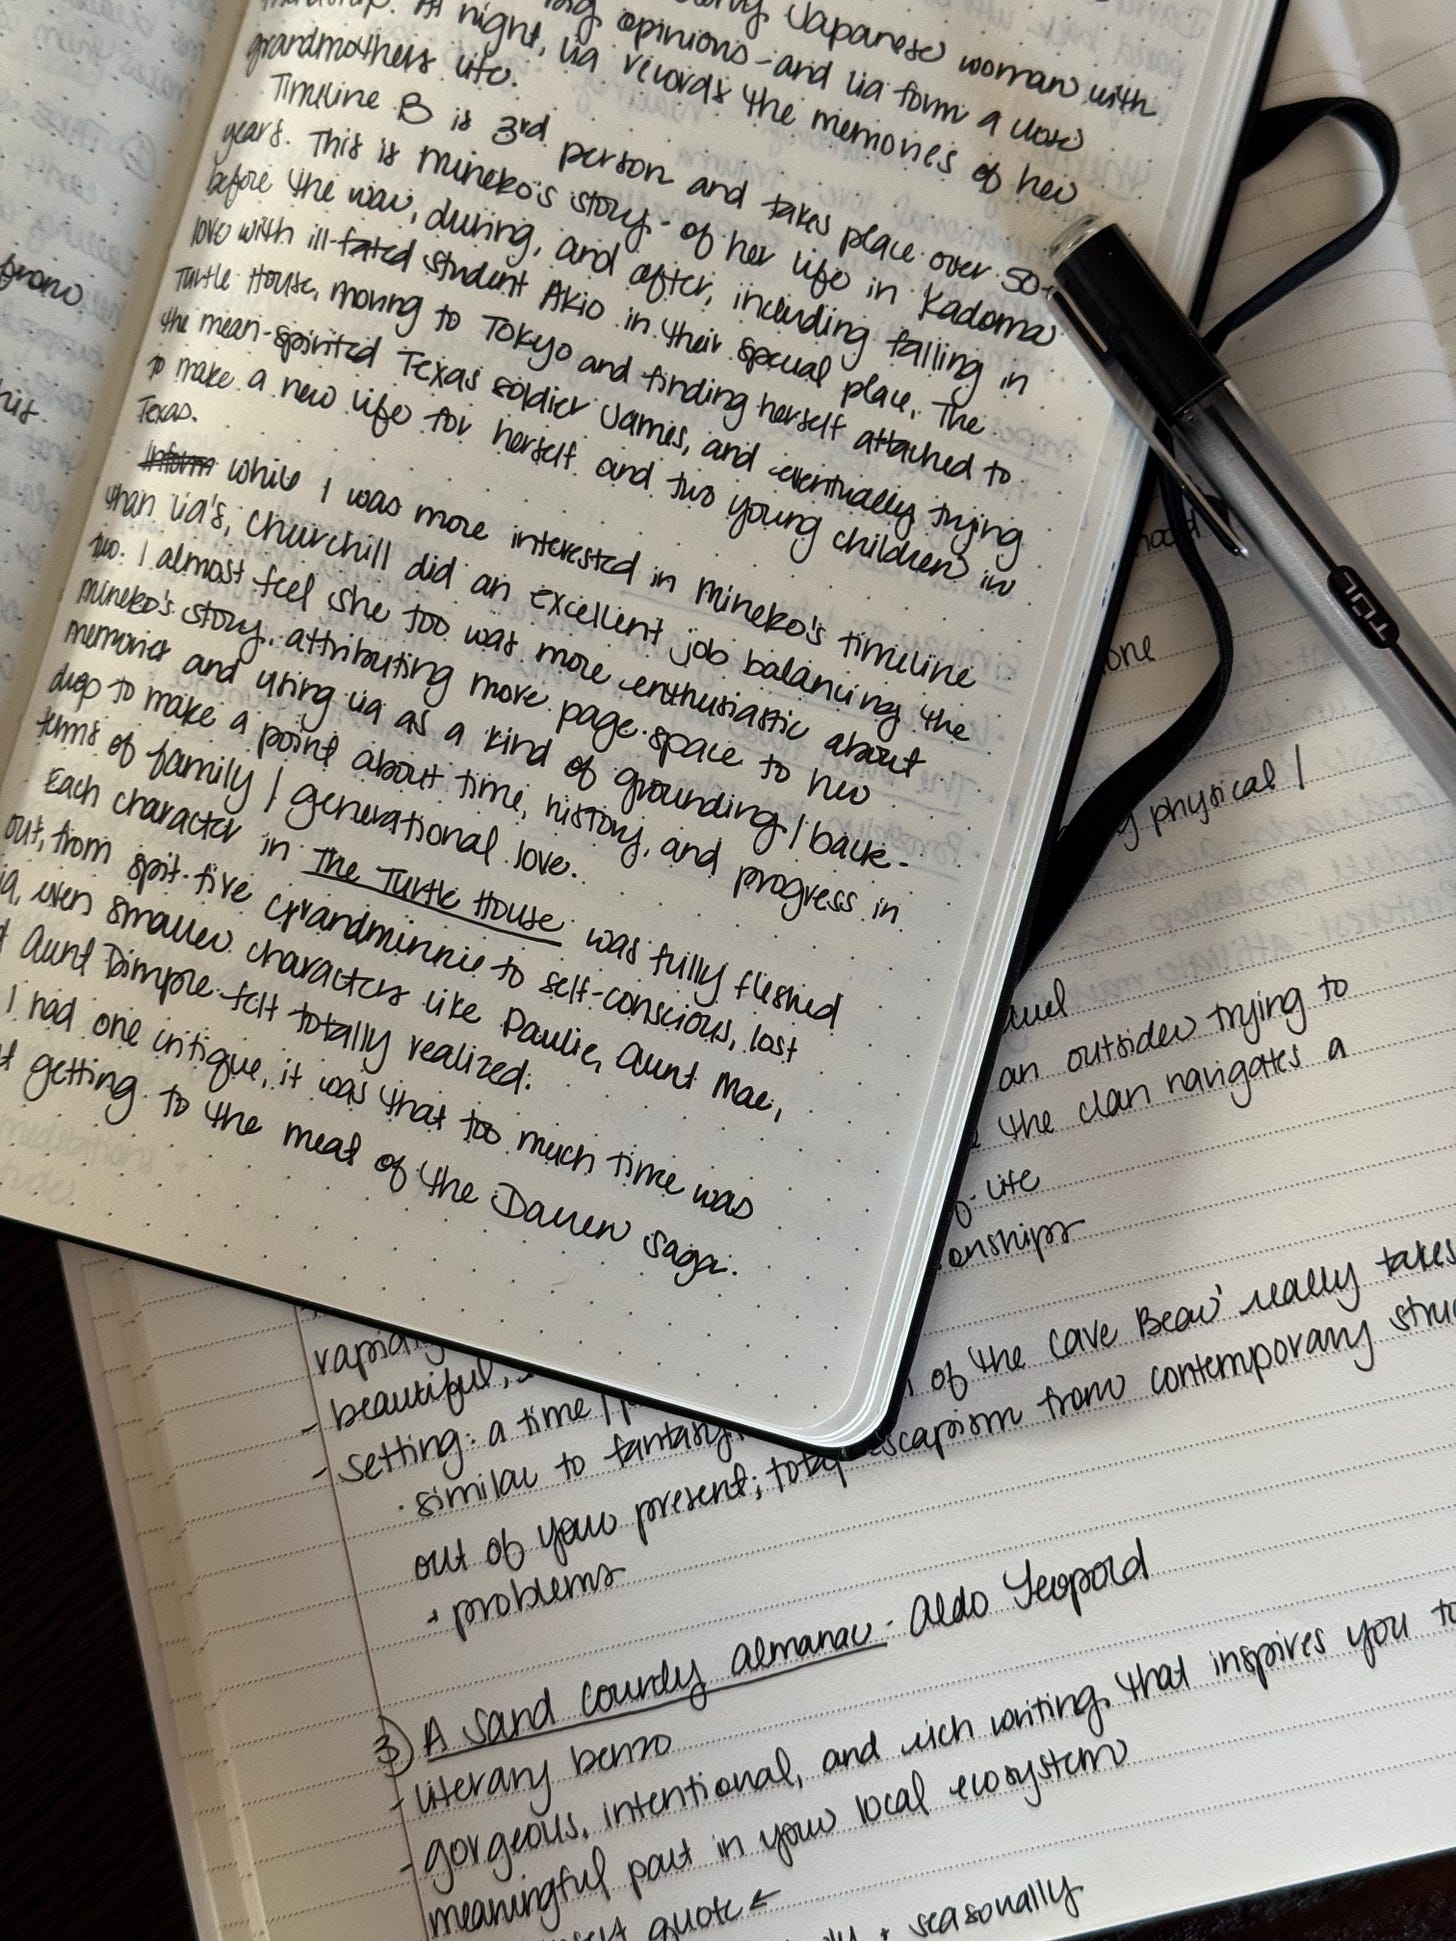 Japanese woman with
big opinions - and Lia form a close
friendship. At night, Lia records the memories of her
grandmothers life.
Timeline B is 3rd person and takes place over 50+
years. This is Mineko's story - of her life in Kadoma
before the war, during, and after, including falling in
love with ill-fated student Akio in their special place, The
Turtle House, moving to Tokyo and finding herself attached to
the mean-spirited Texas soldier James, and eventually trying
to make a new life for herself and two young children in
Texas.
Inform while I was more interested in Mineko's timeline
than Lia's, Churchill did an excellent job balancing the
two. I almost feel she too was more enthusiastic about
Mineko's story, attributing more page space to her
memories and using Lia as a kind of grounding / back-
drop to make a point about time, history, and progress in
terms of family / generational love.
Each character in The Turtle House was fully fleshed
out, from spit-fire Grandminnie to self-conscious, lost
Lia, even smaller characters like Paulie, Aunt Mae,
Aunt Dimple felt totally realized.
I had one critique, it was that too much time was
getting to the meat of the Darren saga.
one
physical /
an outsider trying to
the clan navigates a
life
onships
of the Cave Bear' really takes
rapidly
- beautiful,
- setting: a time /
• similar to fantasy. total escapism from contemporary
out of your present;
+ problems
3) A Sand County Almanac - Aldo Leopold
- literary benzo
- gorgeous, intentional, and rich writing that inspires you to
meaningful part in your local ecosystem
quote ←
+ seasonally
TUL